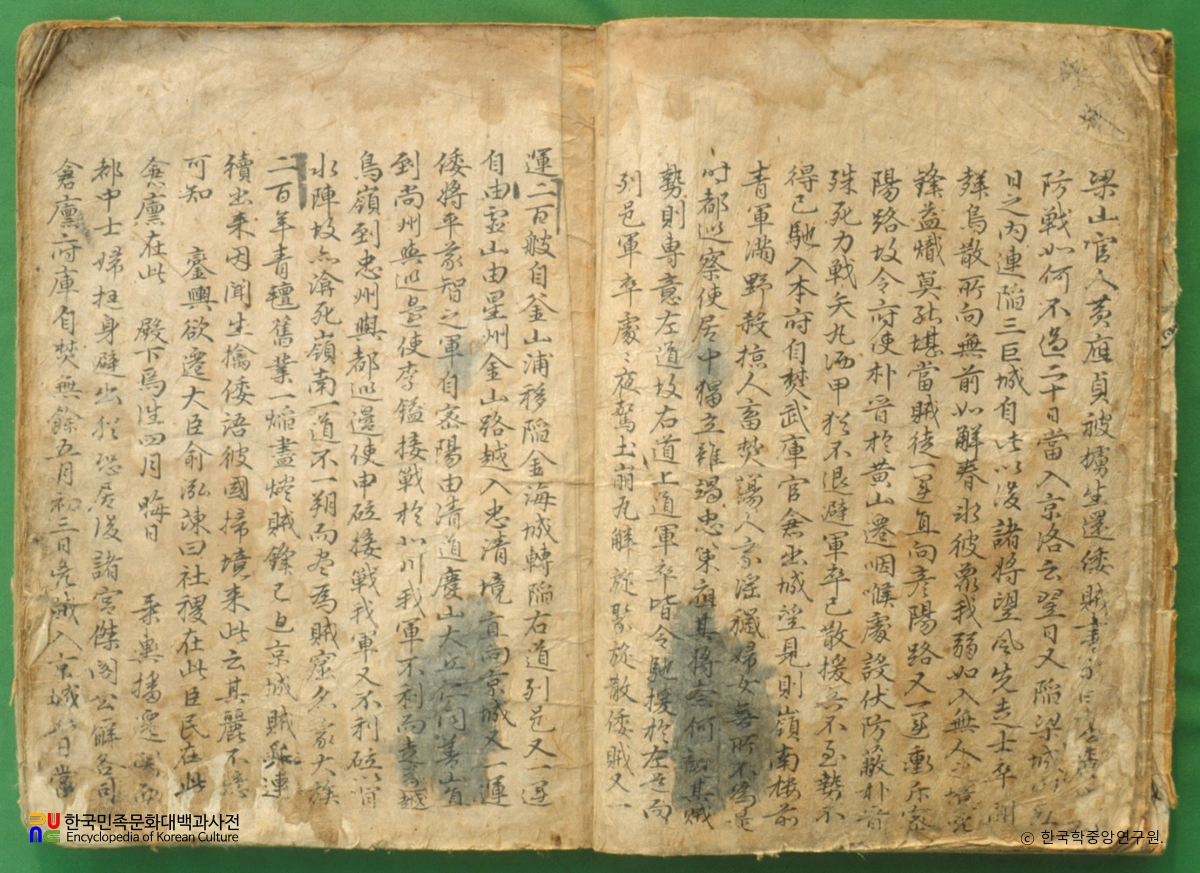 梁山官人黃應貞被擄生還倭賊書
防戰如何不過二十日當入京洛云翌日又陷梁城
日之內連陷三巨城自此以後諸將望風先走士卒聞
聲鳥散所向無前如解春氷彼衆我弱如入無人
鋒益熾莫能堪當賊徒一運直向彦陽路又一運
陽路故令府使朴晋於黃山遷咽喉處設伏防蔽朴晋
殊死力戰矢丸洒甲猶不退避軍卒已散援兵不至勢不
得已馳入本府自焚武庫官倉出城望見則嶺南樓前
青軍滿野殺掠人畜焚蕩人家淫穢婦女無所不爲是
時都巡察使居中獨立雖竭忠策
勢則專意左道故右道上道軍卒皆令馳援於左道而
列邑軍卒處〻夜驚土崩瓦解旋聚旋散倭賊又一
運二百艘自釜山浦移陷金海城轉陷右道列邑又一運
自由靈山由星州金山路越入忠清境直向京城又一運
倭將平義智之軍自密陽由清道慶山大丘仁同善山
到尚州與巡邊使李鎰接戰於北川我軍不利而走
鳥嶺到忠州與都巡邊使申砬接戰我軍又不利砬
水陣故亦渰死嶺南一道不一朔而盡爲賊窟久家大族
二百年青氊舊業一焰盡燼賊鋒已迫京城賊
續出來因聞生擒倭語彼國掃境來此云其麗不億
可知 鑾輿欲遷大臣俞泓諫曰社稷在此臣民在此
倉廩在此 殿下焉往四月晦日 乘輿播遷
都中士婦挺身辟出猶恐居後諸宮傑閣公廨各司
倉廩府庫自焚無餘五月初三日先賊入京城
한국민족문화대백과사전
Encyclopedia of Korean Culture
ⓒ 한국학중앙연구원.